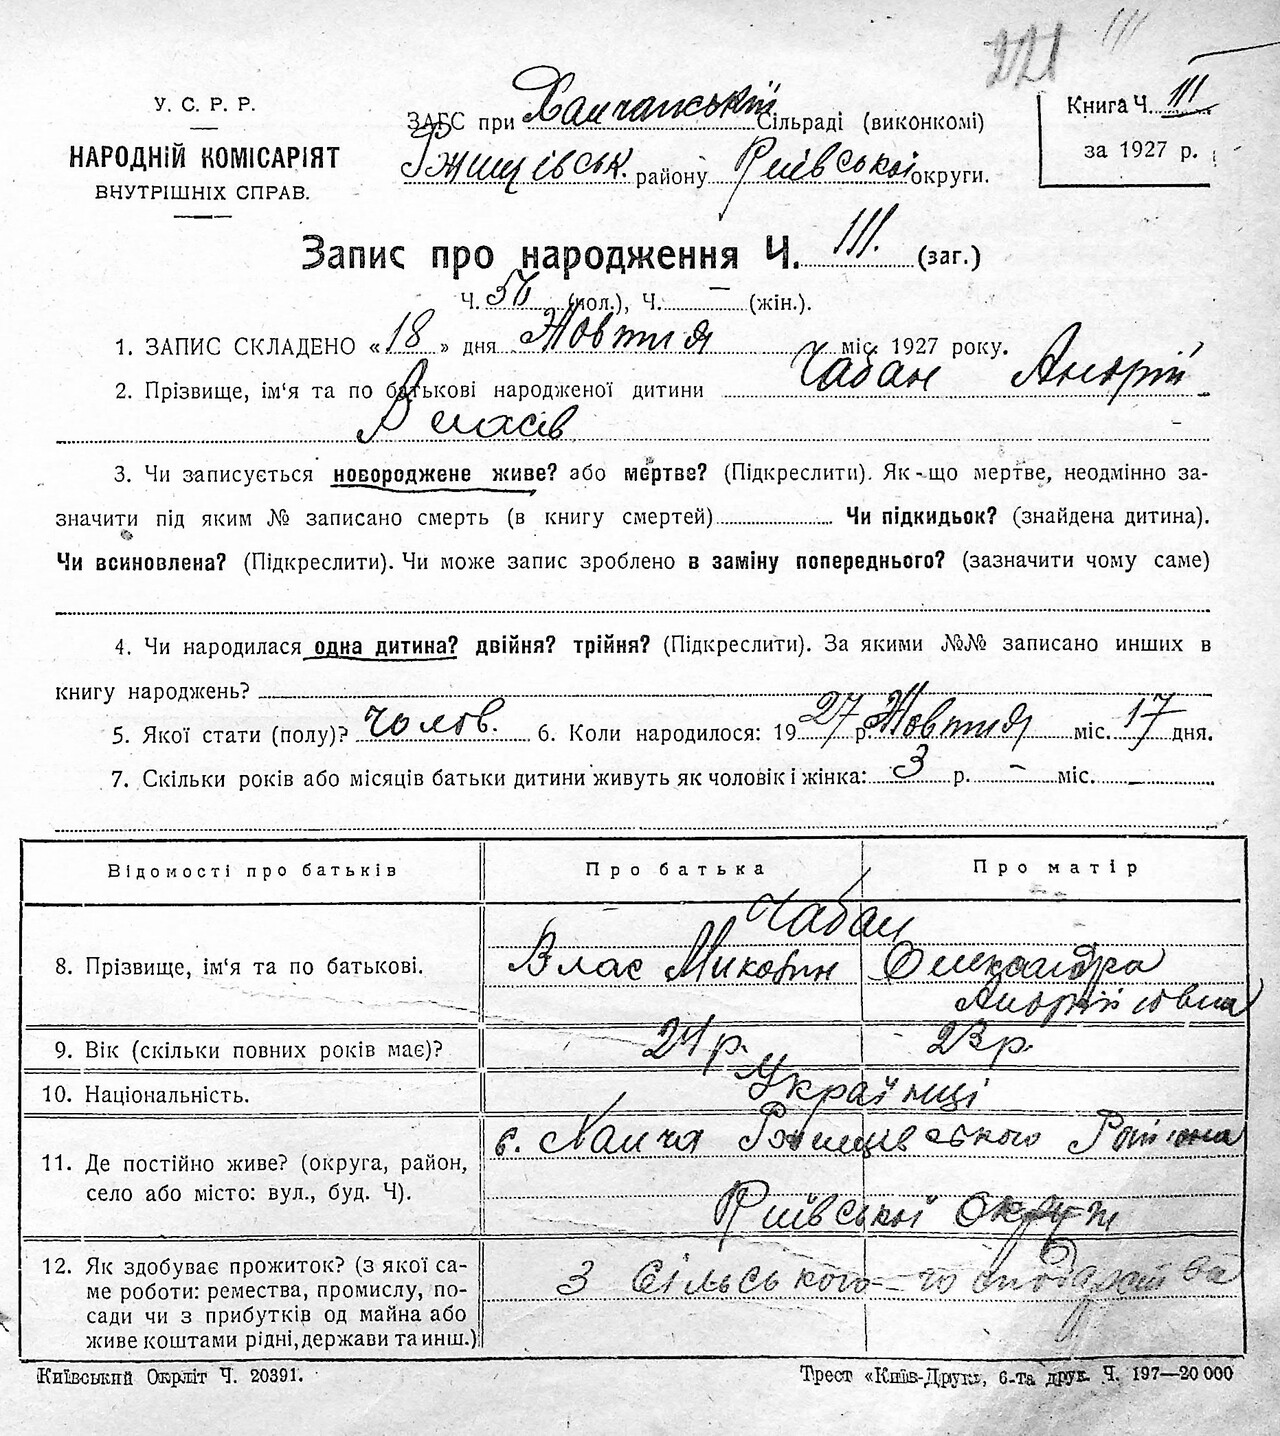 221 111
У. С. Р. Р.
НАРОДНІЙ КОМІСАРІЯТ
ВНУТРІШНІХ СПРАВ.
ЗАГС при Халчанській Сільраді (виконкомі)
Ржищівськ. району Київської округи.
Книга Ч. III
за 1927 р.
Запис про народження Ч. 111. (заг.)
Ч. 56 (пол.), Ч. – (жін.).
1. ЗАПИС СКЛАДЕНО «18» дня Жовтня міс. 1927 року.
2. Прізвище, ім'я та по батькові народженої дитини Чабан Андрій
Власів
3. Чи записується новороджене живе? або мертве? (Підкреслити). Як-що мертве, неодмінно за-
значити під яким № записано смерть (в книгу смертей) Чи підкидьок? (знайдена дитина).
Чи всиновлена? (Підкреслити). Чи може запис зроблено в заміну попереднього? (зазначити чому саме)
4. Чи народилася одна дитина? двійня? трійня? (Підкреслити). За якими №№ записано инших в
книгу народжень?
5. Якої стати (полу)? чолов. 6. Коли народилося: 1927 р. Жовтня міс. 17 дня.
7. Скільки років або місяців батьки дитини живуть як чоловік і жінка: 3 р. – міс.
Відомості про батьків Про батька Про матір
8. Прізвище, ім'я та по батькові. Чабан
Влас Миковин Олександра
Андрійовна
9. Вік (скільки повних років має)? 24 р. 23 р.
10. Національність. Українці
11. Де постійно живе? (округа, район,
село або місто: вул., буд. Ч).
с. Халча Ржищівського Району
Київської Округи
12. Як здобуває прожиток? (з якої са-
ме роботи: ремества, промислу, по-
сади чи з прибутків од майна або
живе коштами рідні, держави та инш.)
З Сільського-господарства
Київський Окрліт Ч. 20391.
Трест «Київ-Друк», 6-та друк. Ч. 197—20 000